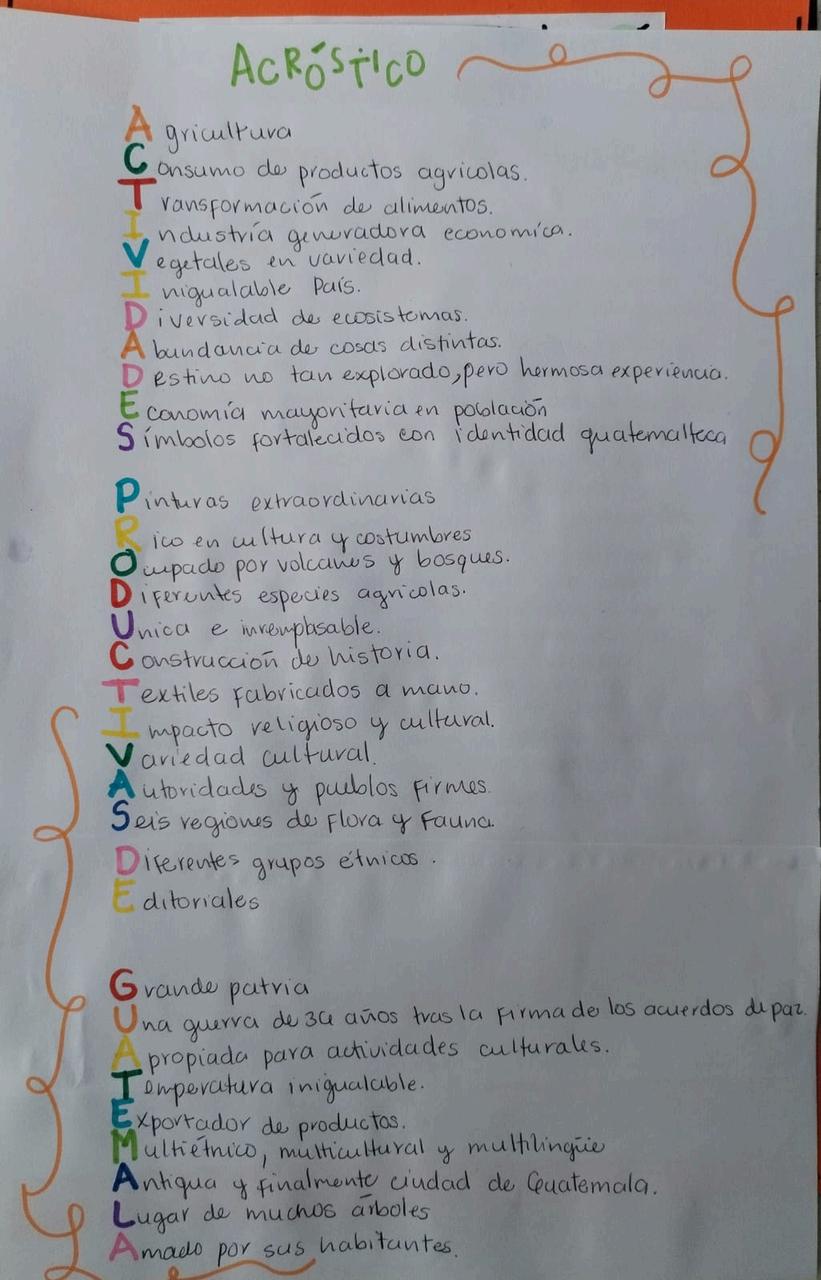 ACRÓSTICO
Agricultura
Consumo de productos agricolas.
Transformación de alimentos.
Industría generadora economica.
Vegetales en variedad.
Inigualable País.
Diversidad de ecosistemas.
Abundancia de cosas distintas.
Destino no tan explorado, pero hermosa experiencia.
Economía mayoritaria en población
Símbolos fortalecidos con identidad guatemalteca
Pinturas extraordinarias
Rico en cultura y costumbres
Ocupado por volcanes y bosques.
Diferentes especies agricolas.
Unica e
Construcción de historia.
Textiles fabricados a mano.
Impacto religioso y cultural.
Variedad cultural.
Autoridades y pueblos firmes.
Seis regiones de flora y fauna.
Diferentes grupos étnicos.
Editoriales
Grande patria
Una guerra de años tras la firma de los acuerdos de paz.
Apropiada para actividades culturales.
Temperatura inigualable.
Exportador de productos.
Multiétnico, multicultural y multilingüe
Antigua y finalmente ciudad de Guatemala.
Lugar de muchos árboles
Amado por sus habitantes.